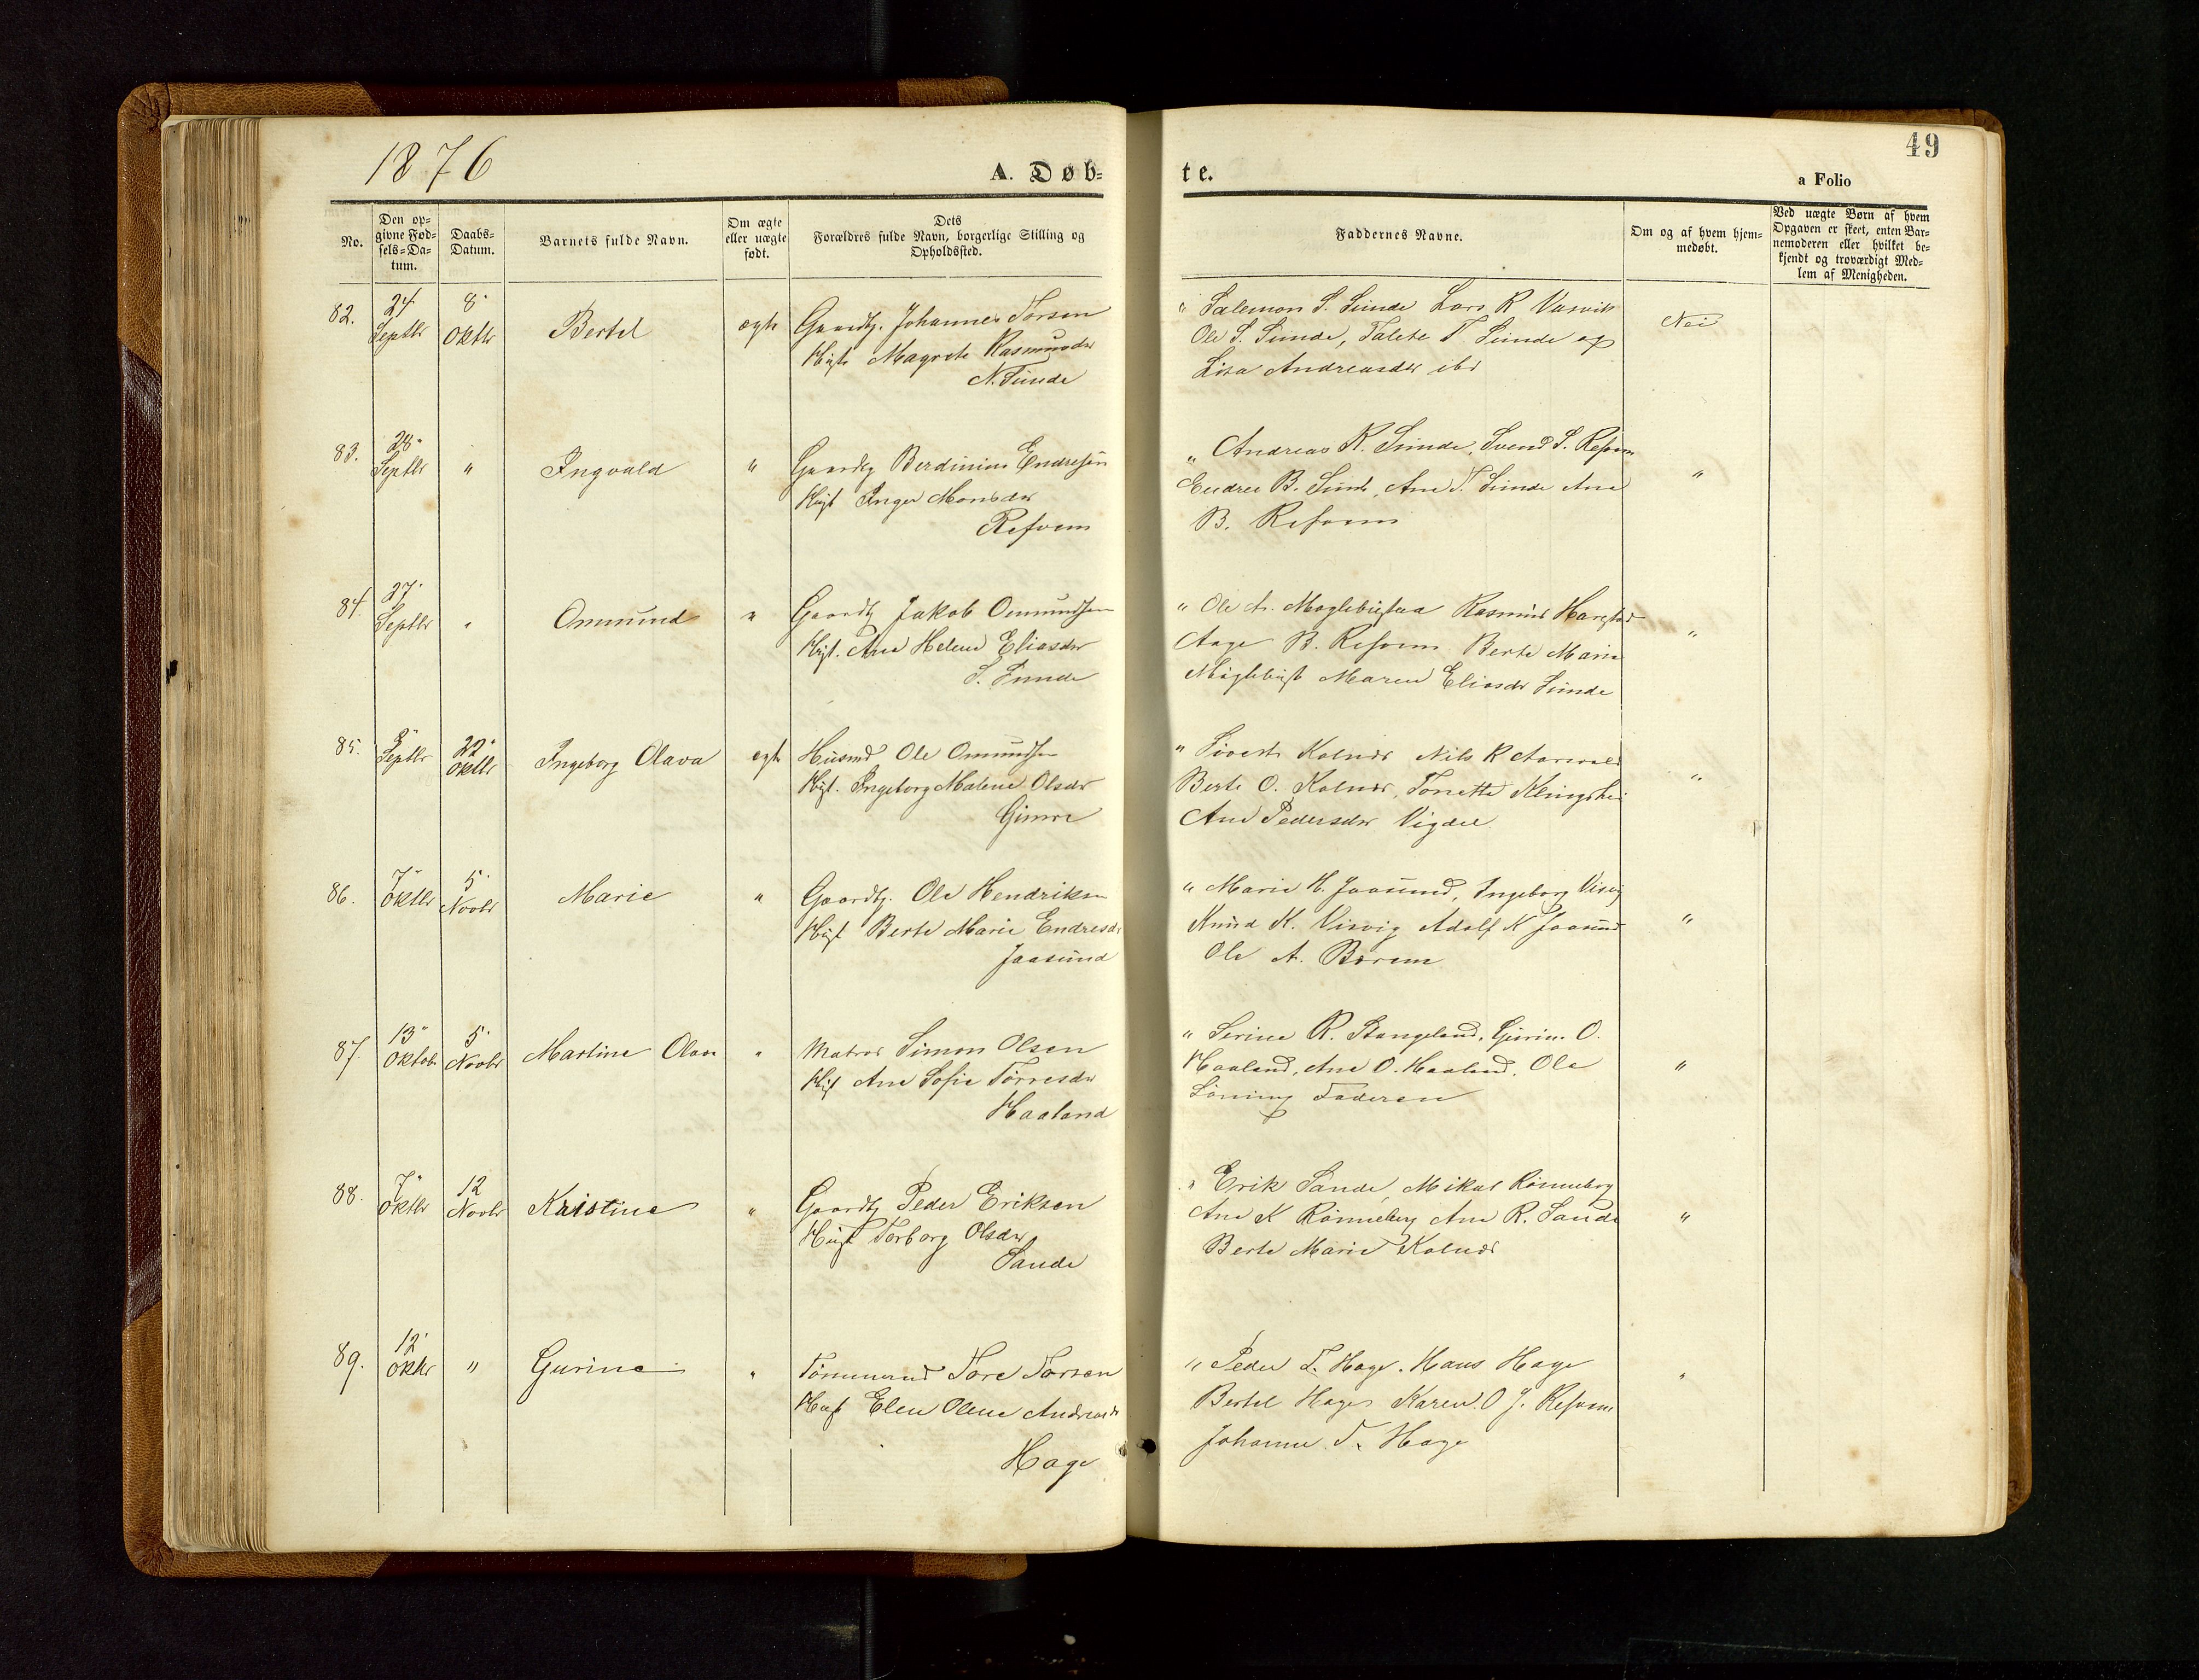 1876
A. Døb=
te.
49
a Folio
No.
Den op=
givne Fød=
sels=Da=
tum.
Daabs=
Datum.
Barnets fulde Navn.
Om ægte
eller uægte
født.
Dets
Forældres fulde Navn, borgerlige Stilling og
Opholdssted.
Faddernes Navne.
Om og af hvem hjem=
medøbt.
Ved uægte Børn af hvem
Opgaven er skeet, enten Bar=
nemoderen eller hvilket be=
kjendt og troværdigt Med=
lem af Menigheden.
82.
24
Septbr
8
Oktbr
Bertel
ægte
Gaardbr. Johannes Torsen
Hust Magrete Rasmusdr
N. Sunde
" Salemon S. Sunde Lars R
Ole S. Sunde, Talete T Sunde og
Lisa Andreasdr ibd
Nei
83.
28
Septbr
"
Ingvald
"
Gaardbr Berdinius Endresen
Hust Inger Monsdr
Refsvem
" Andreas R. Sunde, Svend S. Refsvem
Endre B. Sunde, Ane T. Sunde Ane
B. Refsvem
"
84.
27
Septbr
"
Ommund
"
Gaardbr Jakob Ommundsen
Hust. Ane Helene Eliasdr
S. Sunde
" Ole A. Møglebustad Rasmus Harestad
Aage B. Refsvem Berte Marie
Møglebust Maren Eliasdr Sunde
"
85.
8
Septbr
22
Oktbr
Ingeborg Olava
ægte
Husmd Ole Omundsen
Hust. Ingeborg Malene Olsdr
Gimre
" Sivert Kolnes Nils R
Berte O. Kolnes, Tonette
Ane Pedersdr Vigdel
"
86.
7
Oktbr
5
Novbr
Marie
"
Gaardbr. Ole Hendriksen
Hust Berte Marie Endresdr
Jaasund
" Marie H. Jaasund, Ingeborg Visvig
Knud K. Visvig Adolf K Jaasund
Ole A. Børeim
"
87.
13
Oktob
5
Novbr
Martine Olava
"
Matros Simon Olsen
Hust Ane Sofie Tørresdr
Haaland
" Serine R. Stangeland, Gurine O.
Haaland, Ane O. Haaland, Ole
Faderen
"
88.
7
Oktbr
12
Novbr
Kristine
"
Gaardbr Peder Eriksen
Hust Torborg Olsdr
Sande
" Erik Sande, Mikal Rønneberg
Ane K Rønneberg Ane R. Sande
Berte Marie Kolnes
"
89.
12
Oktbr
"
Gurine
"
Tømmermd Tore Torsen
Hust Elen Olene Andreasdr
Hage
" Peder T. Hage. Hans Hage
Bertel Hage Karen O J. Refsvem
Johanne T. Hage
"